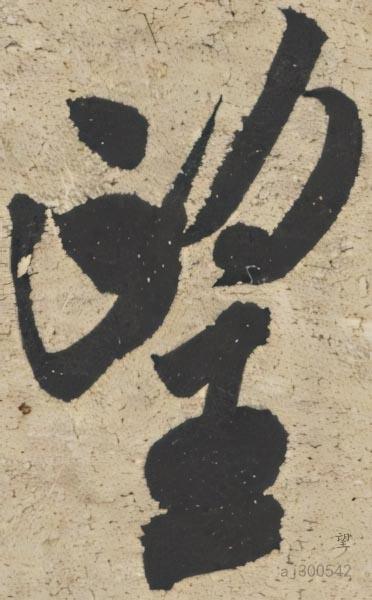 望
望
aj300542